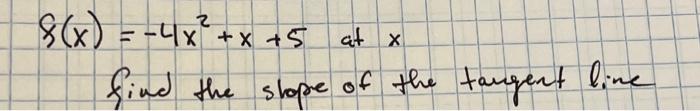 f(x) = -4x² + x + 5 at x
find the slope of the tangent line